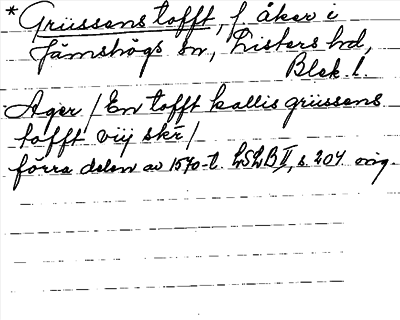 * Grüssens tofft, f. åker i
Jämshögs sn, Listers hd,
Blek. l.
Ager / En tofft kallis grüssens
tofft viij skr /
förra delen av 1570-t. LSLB II, s. 204 orig.